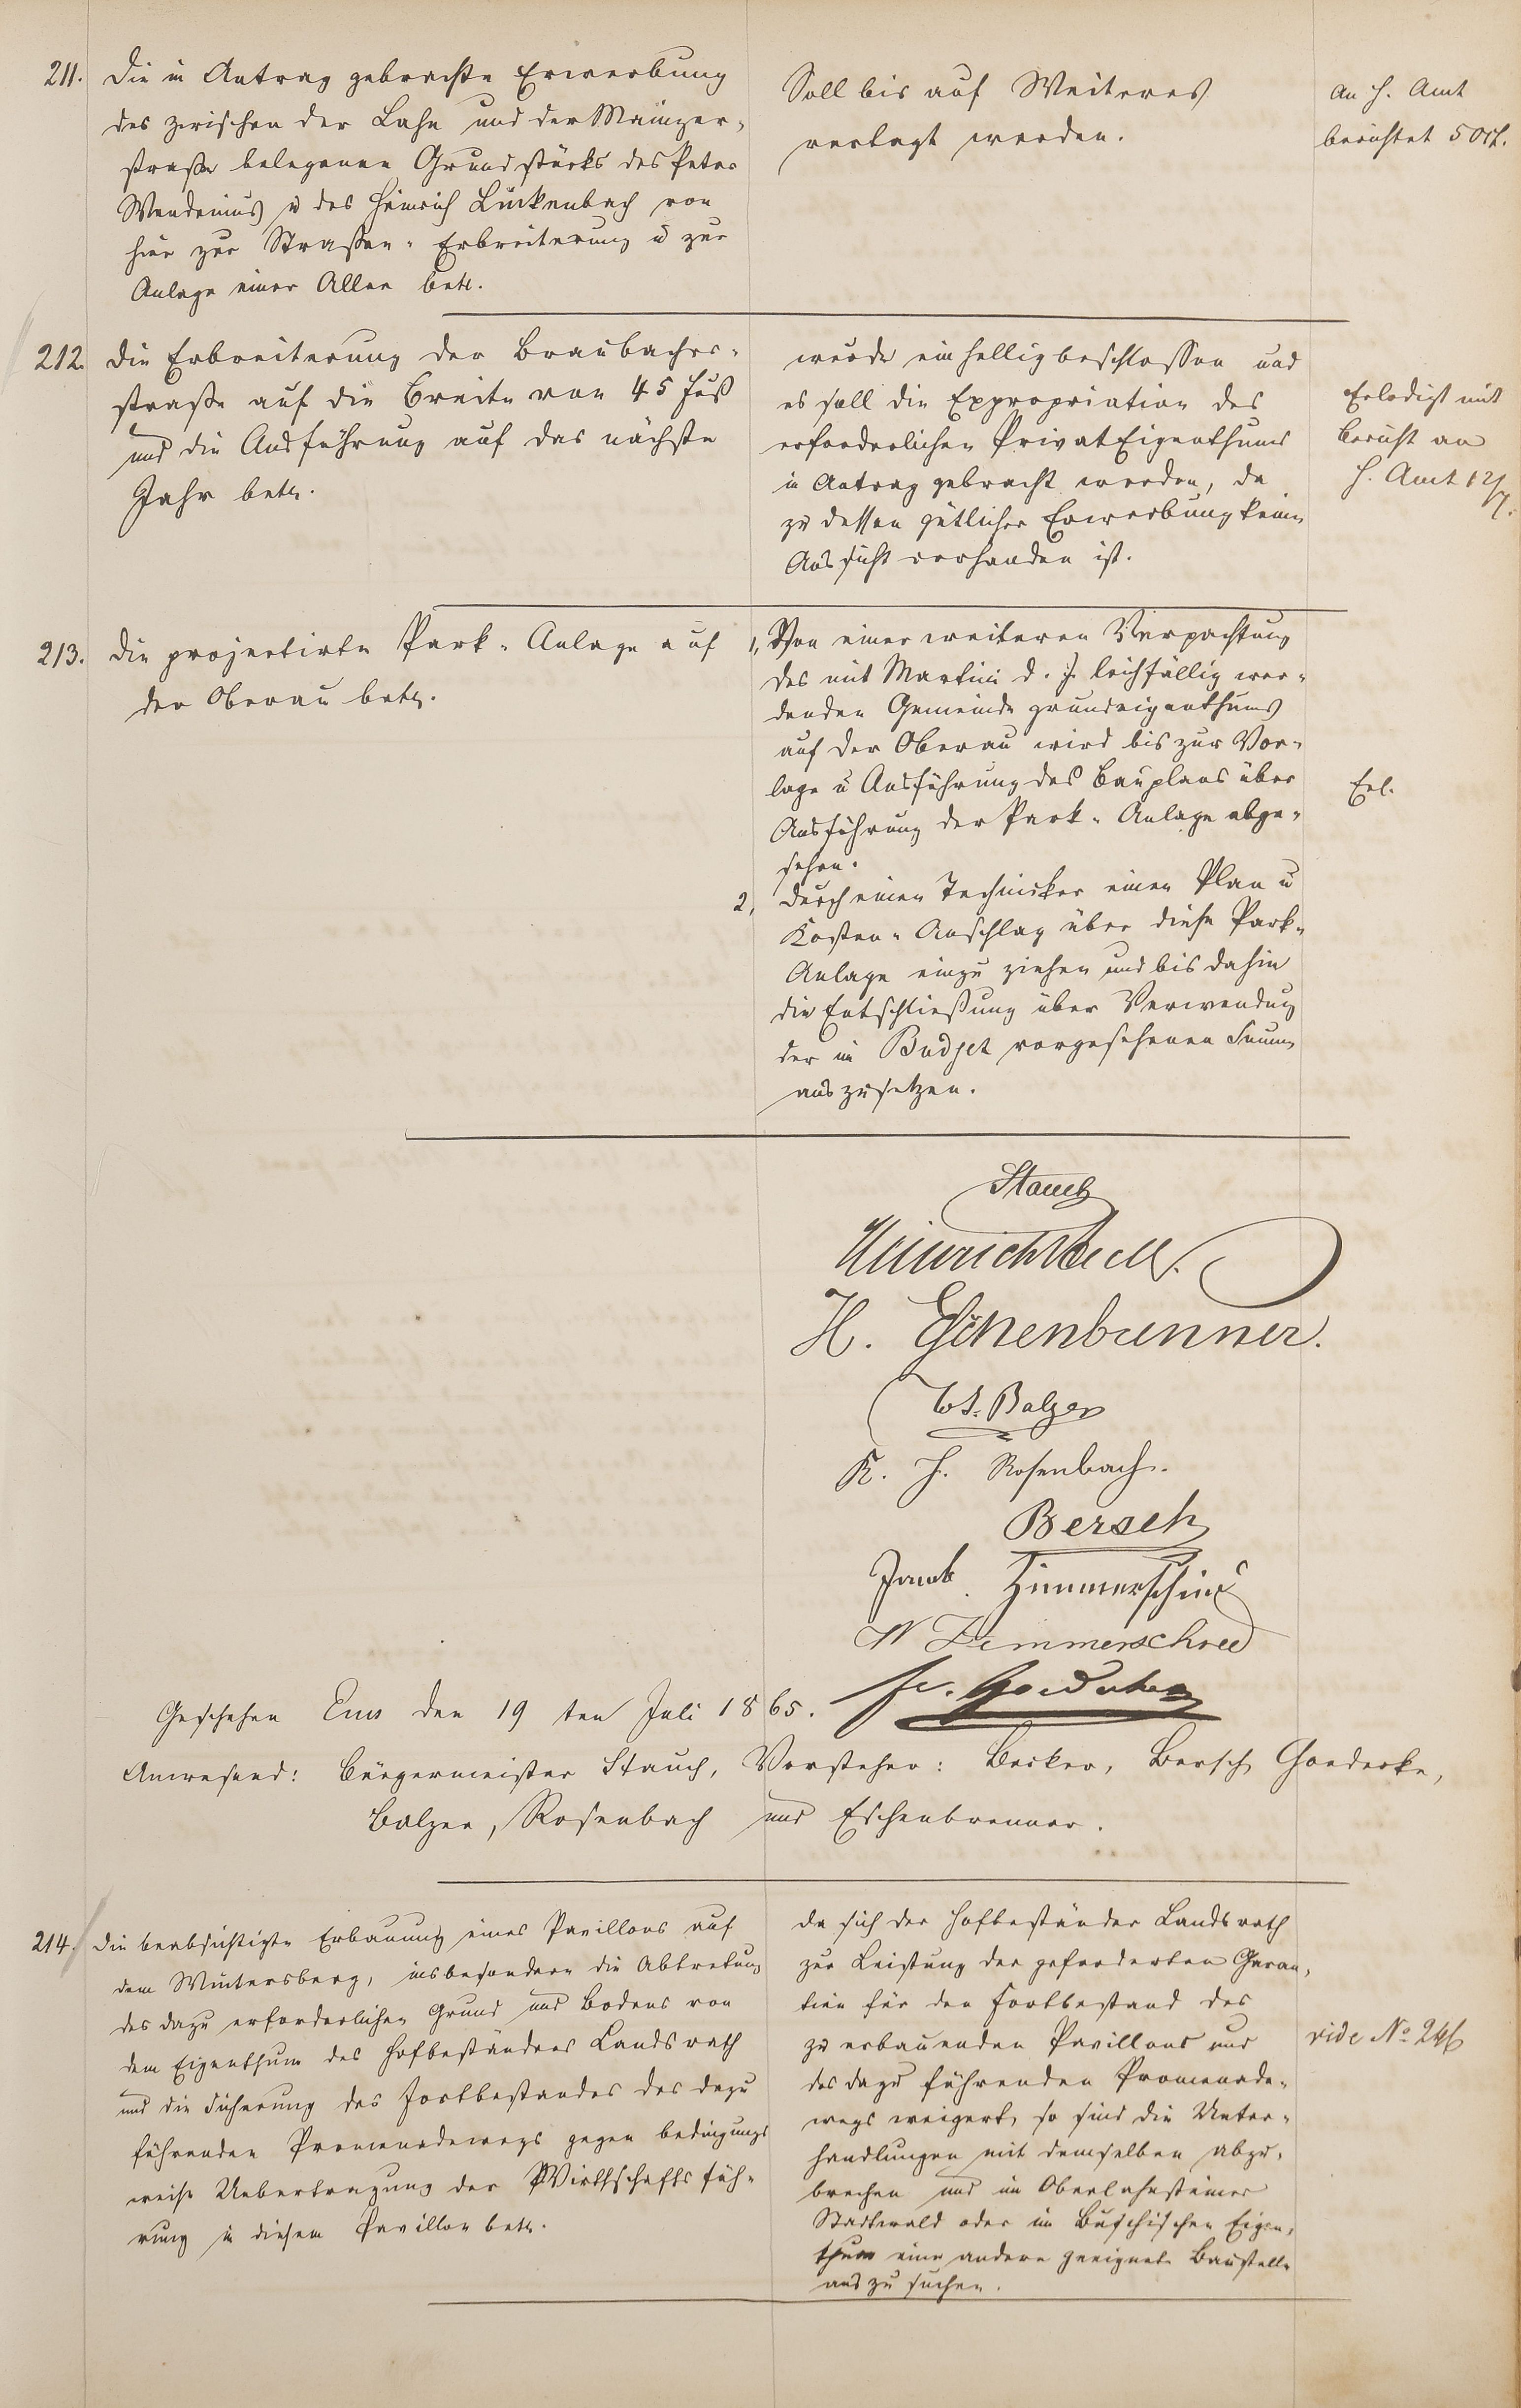 211.
Die in Antrag gebrachte Erwerbung
des zwischen der Lahn und der Mainzer-
straße belegenen Grundstücks des Peter
Wendenius u des Heinrich Lückenbach von
hier zur Straßen-Erbreiterung u zur
Anlage einer Allee betr.
Soll bis auf Weiteres
vertagt werden.
An H. Amt
berichtet
212.
Die Erbreiterung der Braubacher-
straße auf die Breite von 45 Fuß
und die Ausführung auf das nächste
Jahr betr.
wurde einhellig beschlossen und
es soll die Expropriation des
erforderlichen PrivatEigenthums
in Antrag gebracht werden, da
zu dessen gütlicher Erwerbung keine
Aussicht vorhanden ist.
Erledigt mit
Bericht an
H. Amt 12/7.
213.
Die projectirte Park-Anlage auf
der Oberau betr.
1, Von einer weiteren Verpachtung
des mit Martini d. J. leihfällig wer-
denden Gemeinde grundeigenthums
auf der Oberau wird bis zur Vor-
lage u Ausführung des Bauplans über
Ausführung der Park-Anlage abge-
sehen.
2, durch einen Techniker einen Plan u
Kosten-Anschlag über diese Park-
Anlage einzuziehen und bis dahin
die Entschließung über Verwendung
der im Budjet vorgesehenen Summe
auszusetzen.
Erl.
Stauch
Heinrich Becker.
H. Eschenbrenner.
W. Balzer
K. H. Rosenbach.
Bersch
Jacob Zimmerschied
W Zimmerschied
Fr. Goedecke
Geschehen Ems den 19 ten Juli 1865.
Anwesend: Bürgermeister Stauch, Vorsteher: Becker, Bersch, Goedecke,
Balzer, Rosenbach und Eschenbrenner.
214.
Die beabsichtigte Erbauung eines Pavillons auf
dem Wintersberg, insbesondere die Abtretung
des dazu erforderlichen Grund und Bodens von
dem Eigenthum des Hofbeständers Landsrath
und die Sicherung des Fortbestandes des dazu
führenden Promenadewegs gegen bedingungs
weise Uebertragung der Wirthschaftsfüh-
rung in diesem Pavillon betr.
da sich der Hofbeständer Landsrath
zur Leistung der geforderten Garan-
tien für den Fortbestand des
zu erbauenden Pavillons und
des dazu führenden Promenade-
wegs weigert, so sind die Unter-
handlungen mit demselben abzu-
brechen und im Oberlahnsteiner
Stadtwald oder im Buschischen Eigen-
thum eine andere geeignete Baustelle
auszusuchen.
vide No 246